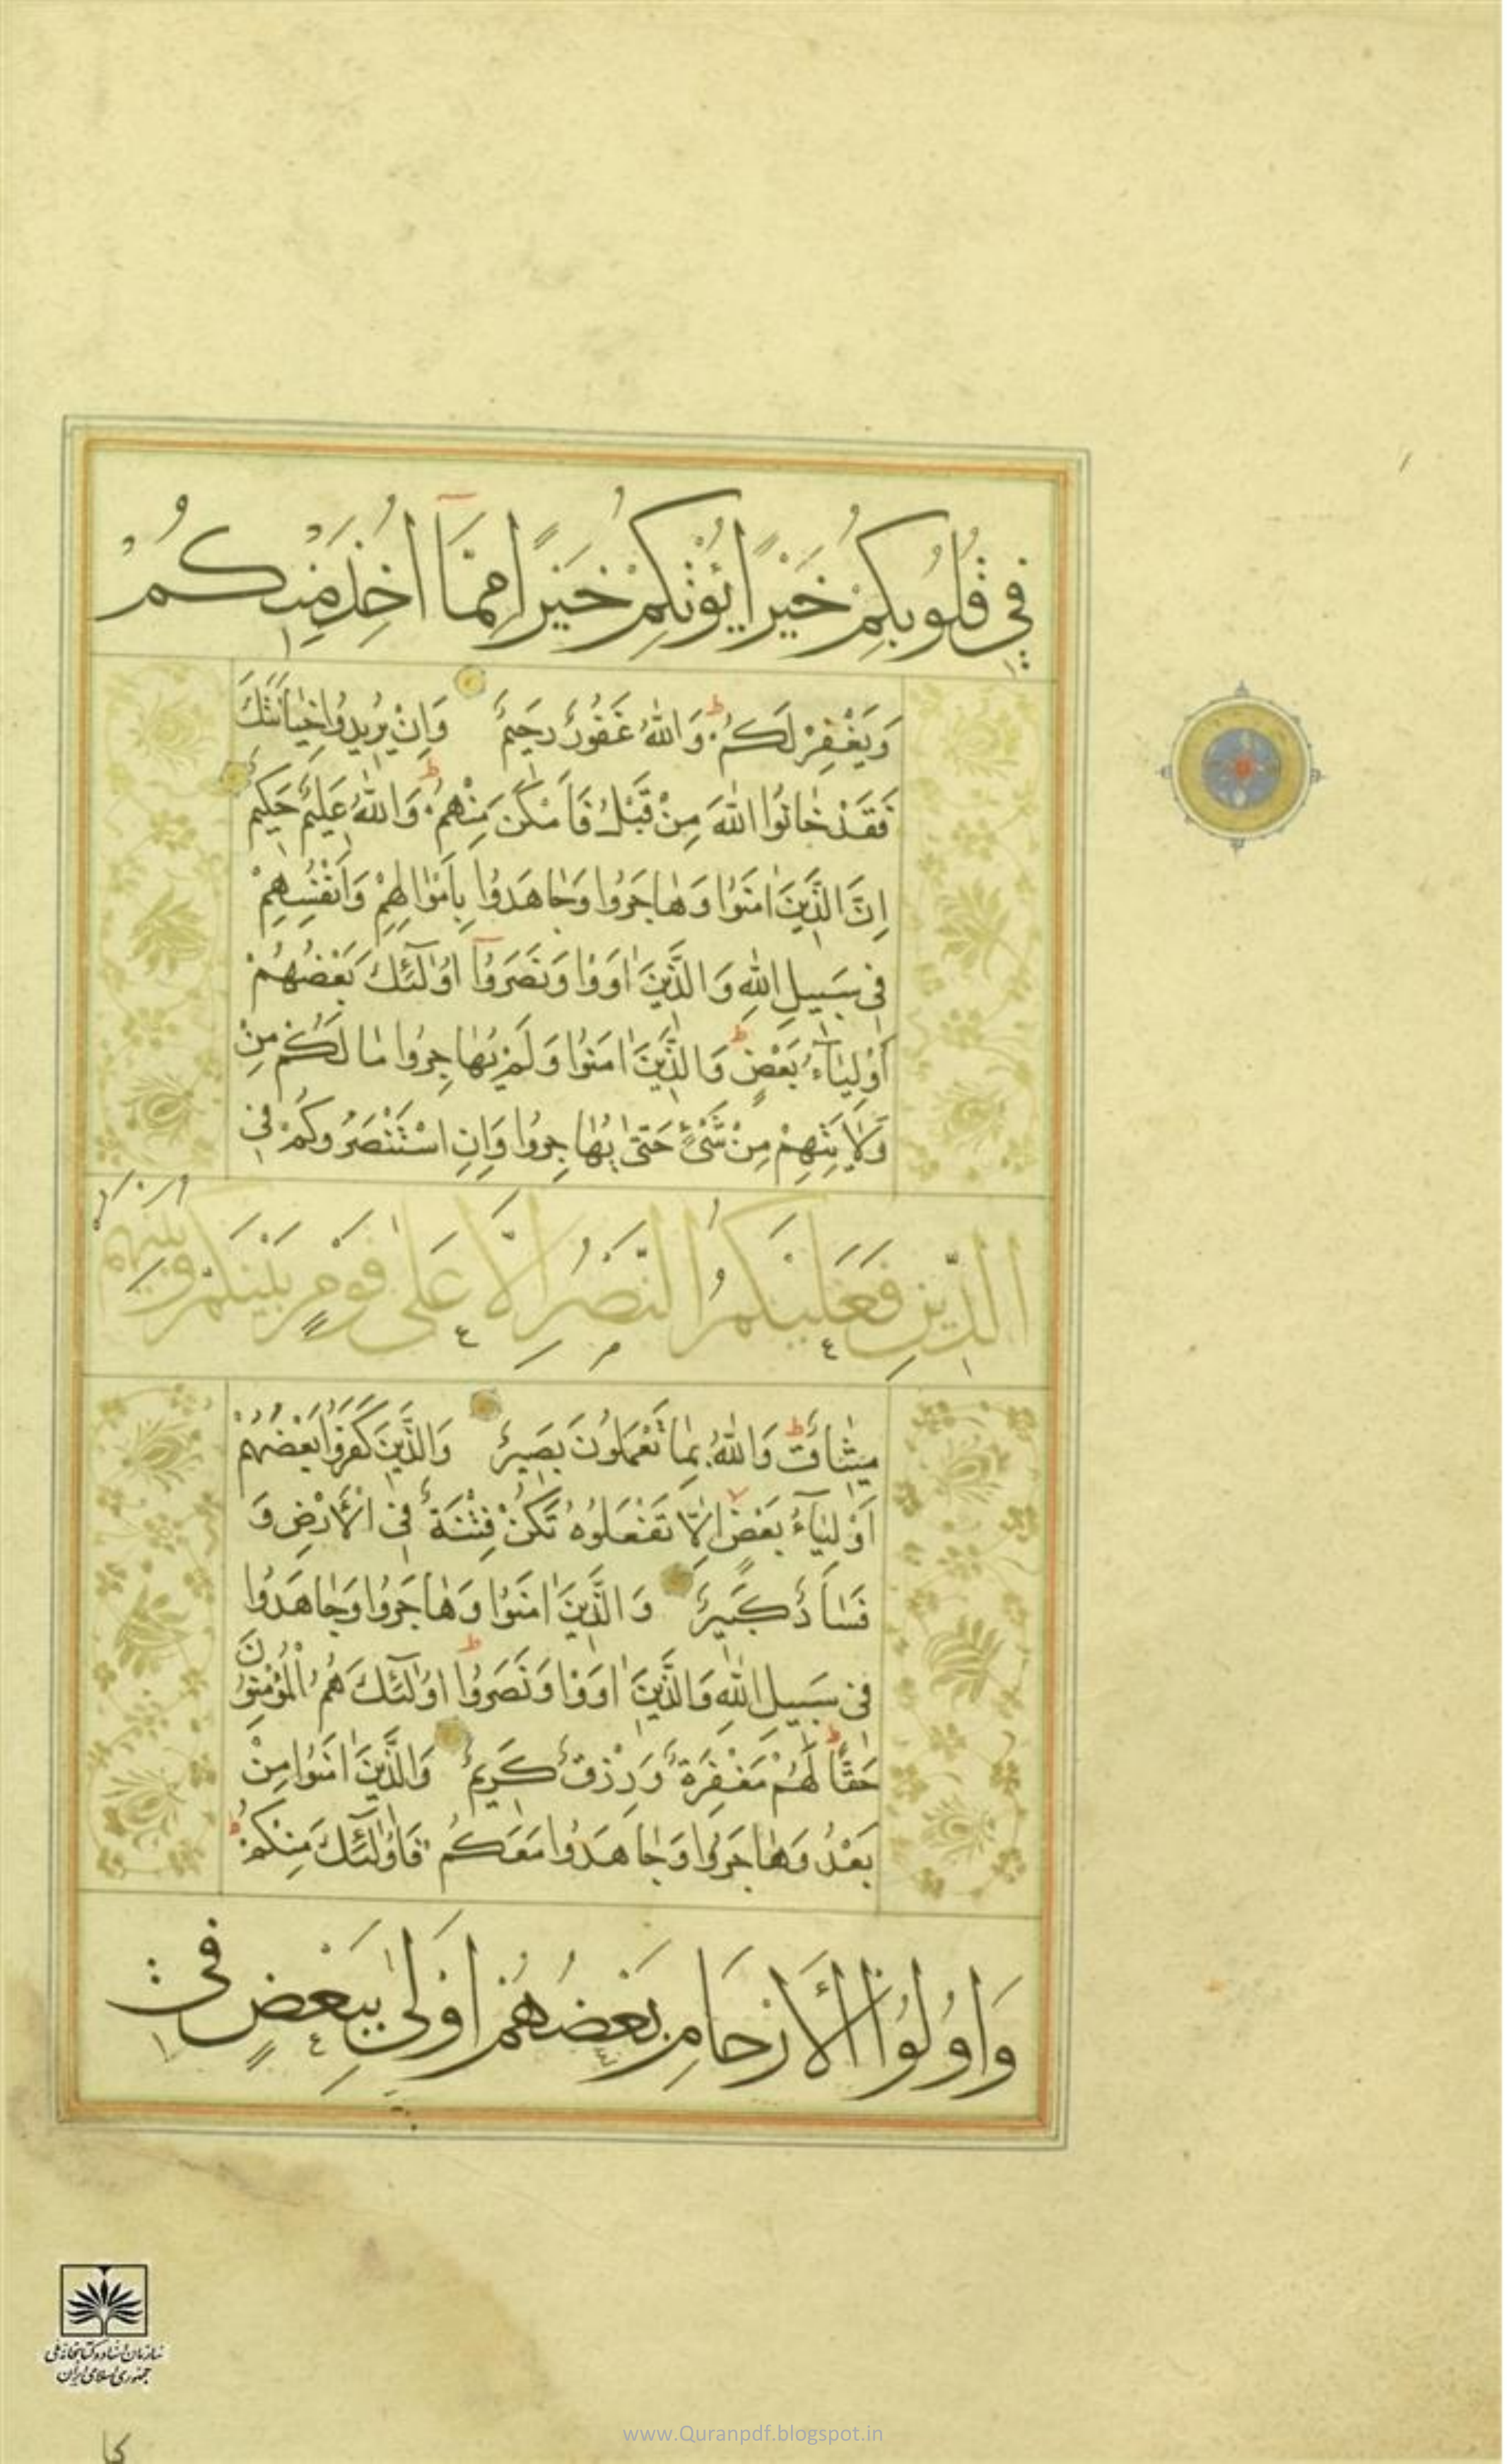 فِي قُلُوبِكُمْ خَيْرًا يُؤْتِكُمْ خَيْرًا مِمَّآ اُخِذَ مِنْكُمْ
وَيَغْفِرْ لَكُمْ ط وَاللّٰهُ غَفُورٌ رَحِيمٌ وَاِنْ يُرِيدُوا خِيٰانَتَكَ
فَقَدْ خٰانُوا اللّٰهَ مِنْ قَبْلُ فَاَمْكَنَ مِنْهُمْ ط وَاللّٰهُ عَلِيمٌ حَكِيمٌ
اِنَّ الَّذِينَ اٰمَنُوا وَهٰاجَرُوا وَجٰاهَدُوا بِاَمْوٰالِهِمْ وَاَنْفُسِهِمْ
فِي سَبِيلِ اللّٰهِ وَالَّذِينَ اٰوَوْا وَنَصَرُوٓا اُولٰٓئِكَ بَعْضُهُمْ
اَوْلِيٰآءُ بَعْضٍ ط وَالَّذِينَ اٰمَنُوا وَلَمْ يُهٰاجِرُوا مٰا لَكُمْ مِنْ
وَلٰايَتِهِمْ مِنْ شَيْءٍ حَتّٰى يُهٰاجِرُوا وَاِنِ اسْتَنْصَرُوكُمْ فِي
الدِّينِ فَعَلَيْكُمُ النَّصْرُ اِلَّا عَلٰى قَوْمٍ بَيْنَكُمْ وَبَيْنَهُمْ
مِيثٰاقٌ ط وَاللّٰهُ بِمٰا تَعْمَلُونَ بَصِيرٌ وَالَّذِينَ كَفَرُوا بَعْضُهُمْ
اَوْلِيٰآءُ بَعْضٍ اِلَّا تَفْعَلُوهُ تَكُنْ فِتْنَةٌ فِي الْاَرْضِ وَ
فَسٰادٌ كَبِيرٌ وَالَّذِينَ اٰمَنُوا وَهٰاجَرُوا وَجٰاهَدُوا
فِي سَبِيلِ اللّٰهِ وَالَّذِينَ اٰوَوْا وَنَصَرُوٓا اُولٰٓئِكَ هُمُ الْمُؤْمِنُونَ
حَقًّا ط لَهُمْ مَغْفِرَةٌ وَرِزْقٌ كَرِيمٌ وَالَّذِينَ اٰمَنُوا مِنْ
بَعْدُ وَهٰاجَرُوا وَجٰاهَدُوا مَعَكُمْ فَاُولٰٓئِكَ مِنْكُمْ ط
وَاُولُوا الْاَرْحَامِ بَعْضُهُمْ اَوْلٰى بِبَعْضٍ فِي
سازمان اسناد و کتابخانه ملی
جمهوری اسلامی ایران
www.Quranpdf.blogspot.in